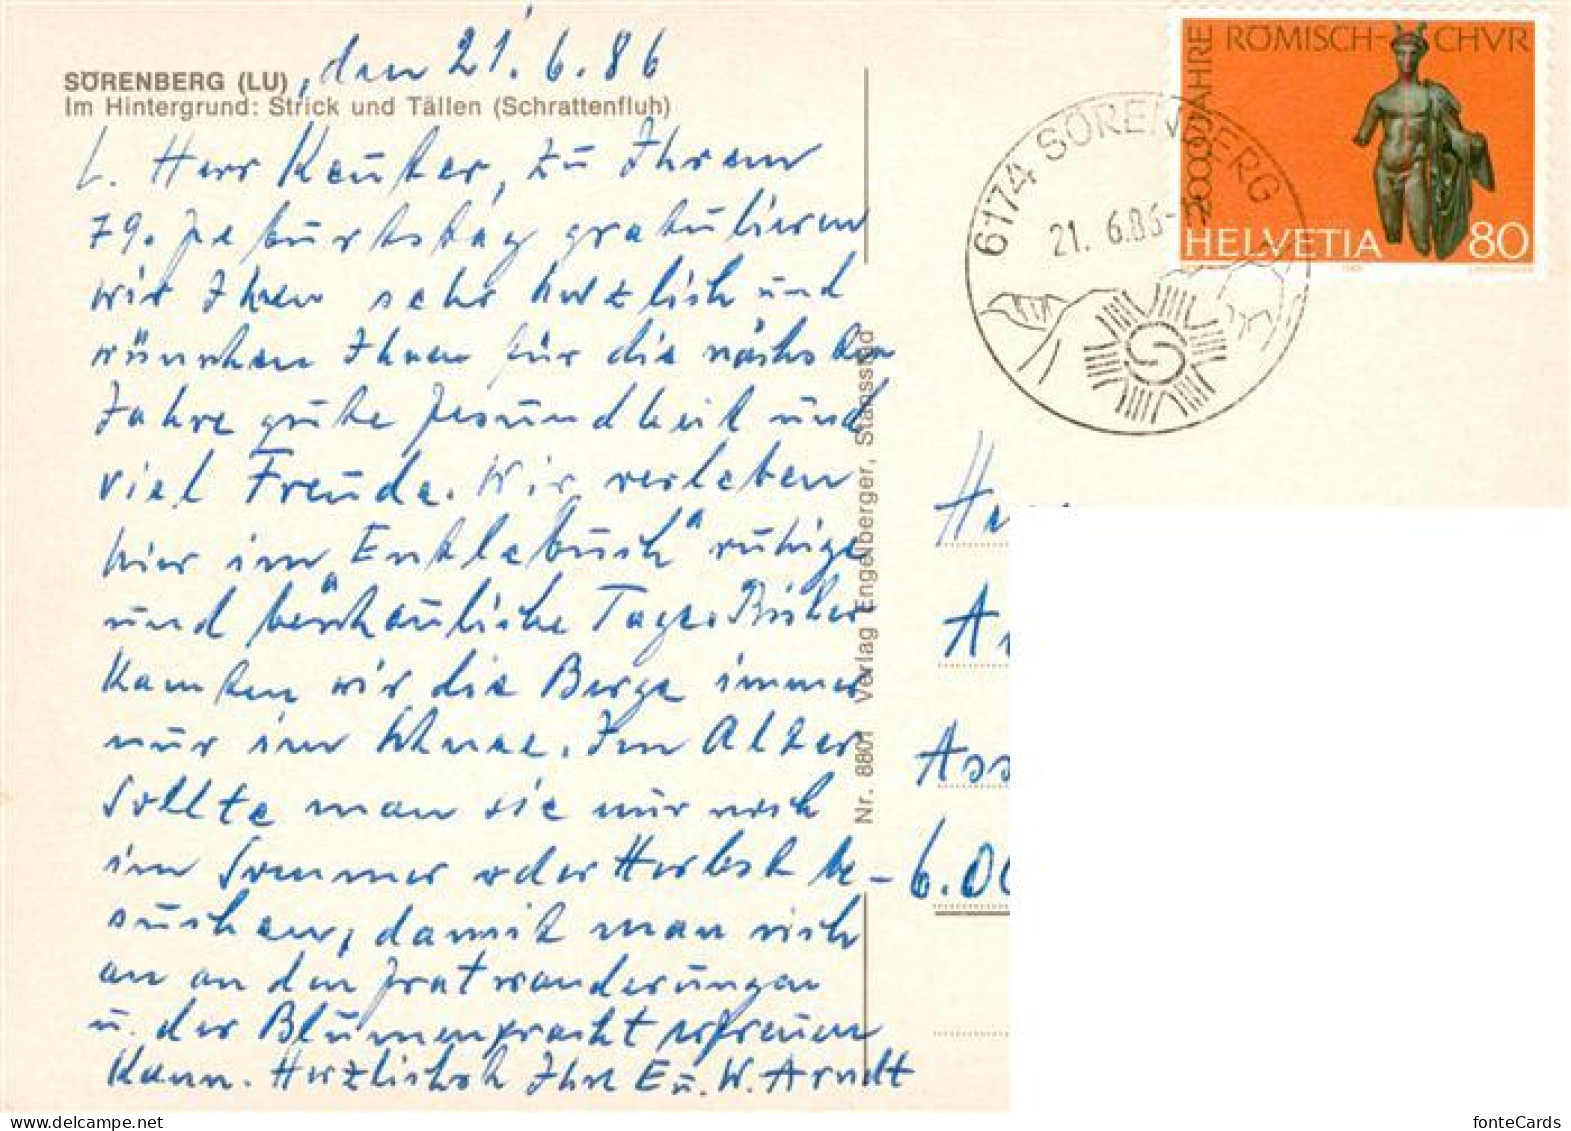 SÖRENBERG (LU), den 21.6.86
Im Hintergrund: Strick und Tällen (Schrattenfluh)
L. Herr Keuter, zu Ihrem
79. Geburtstag gratulieren
wir Ihnen sehr herzlich und
wünschen Ihnen für die nächsten
Jahre gute Gesundheit und
viel Freude. Wir verleben
hier im „Entlebuch" ruhige
und beschauliche Tage. Bisher
kannten wir die Berge immer
nur im Schnee. Im Alter
sollte man sie nur noch
im Sommer oder Herbst be-
suchen, damit man sich
an den Gratwanderungen
u. der Blumenpracht erfreuen
kann. Herzlichst Ihre E u. W. Arndt
Nr. 8801 Verlag Engelberger, Stansstad
6174 SÖRENBERG
21. 6.86
2000 JAHRE
RÖMISCH-CHVR
HELVETIA 80
He
A
Ass
6.00
fonteCards